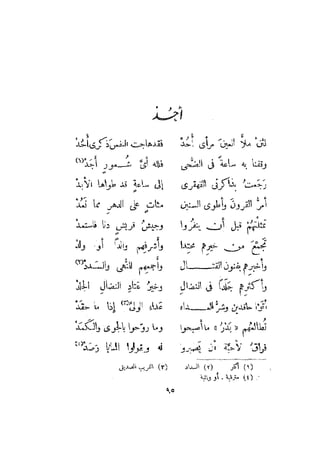 أُحُدْ
لئن ملأ العين مرأى أُحُدْ فقد هاجت النفس ذكرى أُحُدْ
وقفنا به ساعة فى الضحى فلله أىّ شعور أجدْ (١)
رجعتُ بذاكرتى القهقرى إلى ساعة قد طواها الأبدْ
أمرُّ القرون وأطوى السنين مئات على الدهر مما تُعَدْ
تمثلتهم قبل أن ينفروا وجيش قريش دنا فاستعدْ
تجمّع من خيرهم محتِدا وأشرفهم والدًا أو ولدْ
وأخبرهم بفنون القتال وأجمعهم للنُّهى والسدد (٢)
وأكثرهم جلدًا فى النضال وخيرُ عتاد النضال الجلدْ
أتوا حاقدين وشرُّ العداه عداء الولىّ (٣) إذا ما حقدْ
تطالعهم « بدرُ » ما أصبحوا وما روّحوا بالجوى والكمدْ
فراقُ الأحبّة أن يصبروا له
(١) أكثر (٢) السداد (٣) القريب الصديق
(٤)
٩٥